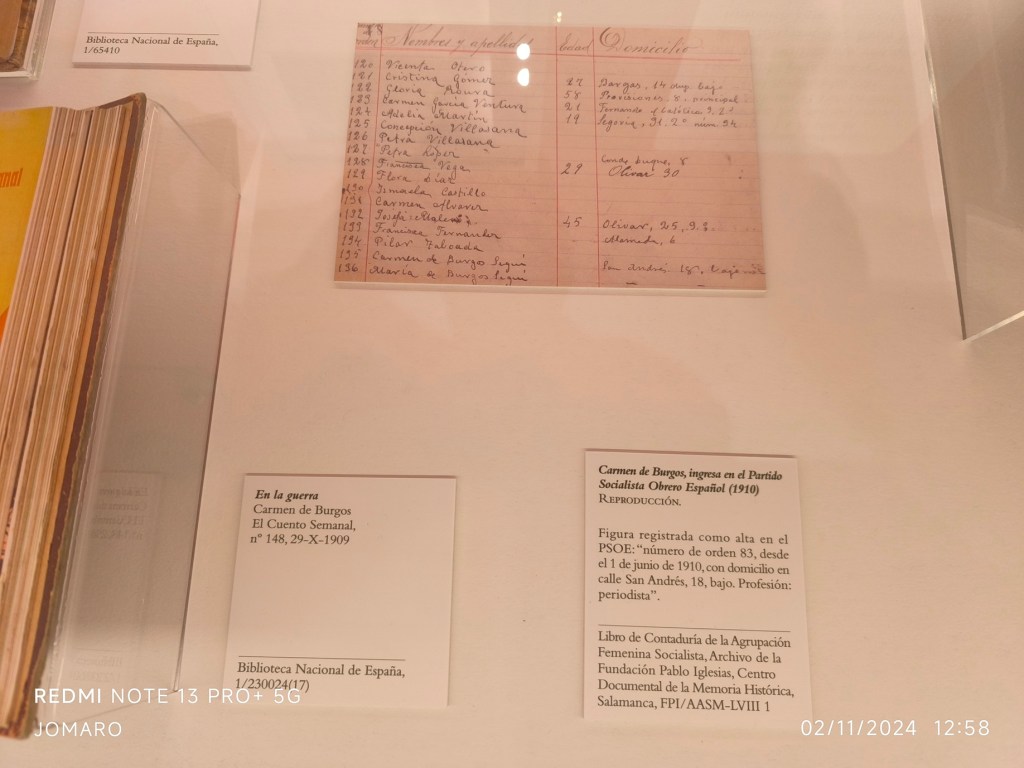 Biblioteca Nacional de España,
1/65410
Nombres y apellidos Edad Domicilio
120 Vicenta Otero
121 Cristina Gómez 27 Bargas, 14 bajo
122 Gloria 58 Provisiones 8, principal
123 Carmen Garcia Ventura 21 Fernando el Católico 9, 2º
124 Adela Martin 19 Segovia, 31, 2º núm. 24
125 Concepción Villasana
126 Petra Villasana
127 Petra López Conde Duque, 8
128 Francisca Vega 29 Olivar 30
129 Flora Diaz
130 Ismaela Castillo
131 Carmen Alvarez
132 Josefa 45 Olivar, 25, 3º
133 Francisca Fernandez Alameda, 6
134 Pilar Taboada
135 Carmen de Burgos Seguí San Andrés 18, bajo
136 Maria de Burgos Seguí
En la guerra
Carmen de Burgos
El Cuento Semanal,
nº 148, 29-X-1909
Biblioteca Nacional de España,
1/230024(17)
Carmen de Burgos, ingresa en el Partido
Socialista Obrero Español (1910)
REPRODUCCIÓN.
Figura registrada como alta en el
PSOE: “número de orden 83, desde
el 1 de junio de 1910, con domicilio en
calle San Andrés, 18, bajo. Profesión:
periodista”.
Libro de Contaduría de la Agrupación
Femenina Socialista, Archivo de la
Fundación Pablo Iglesias, Centro
Documental de la Memoria Histórica,
Salamanca, FPI/AASM-LVIII 1
REDMI NOTE 13 PRO+ 5G
JOMARO
02/11/2024 12:58